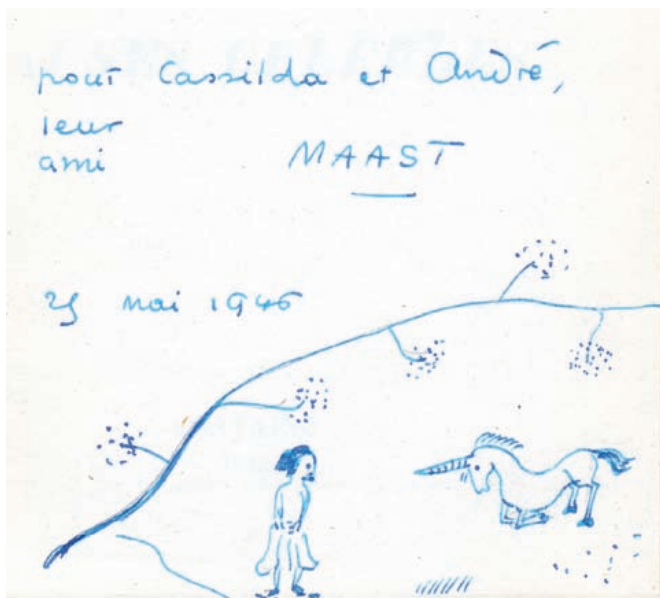 pour Cassilda et André,
leur
ami MAAST
25 mai 1946